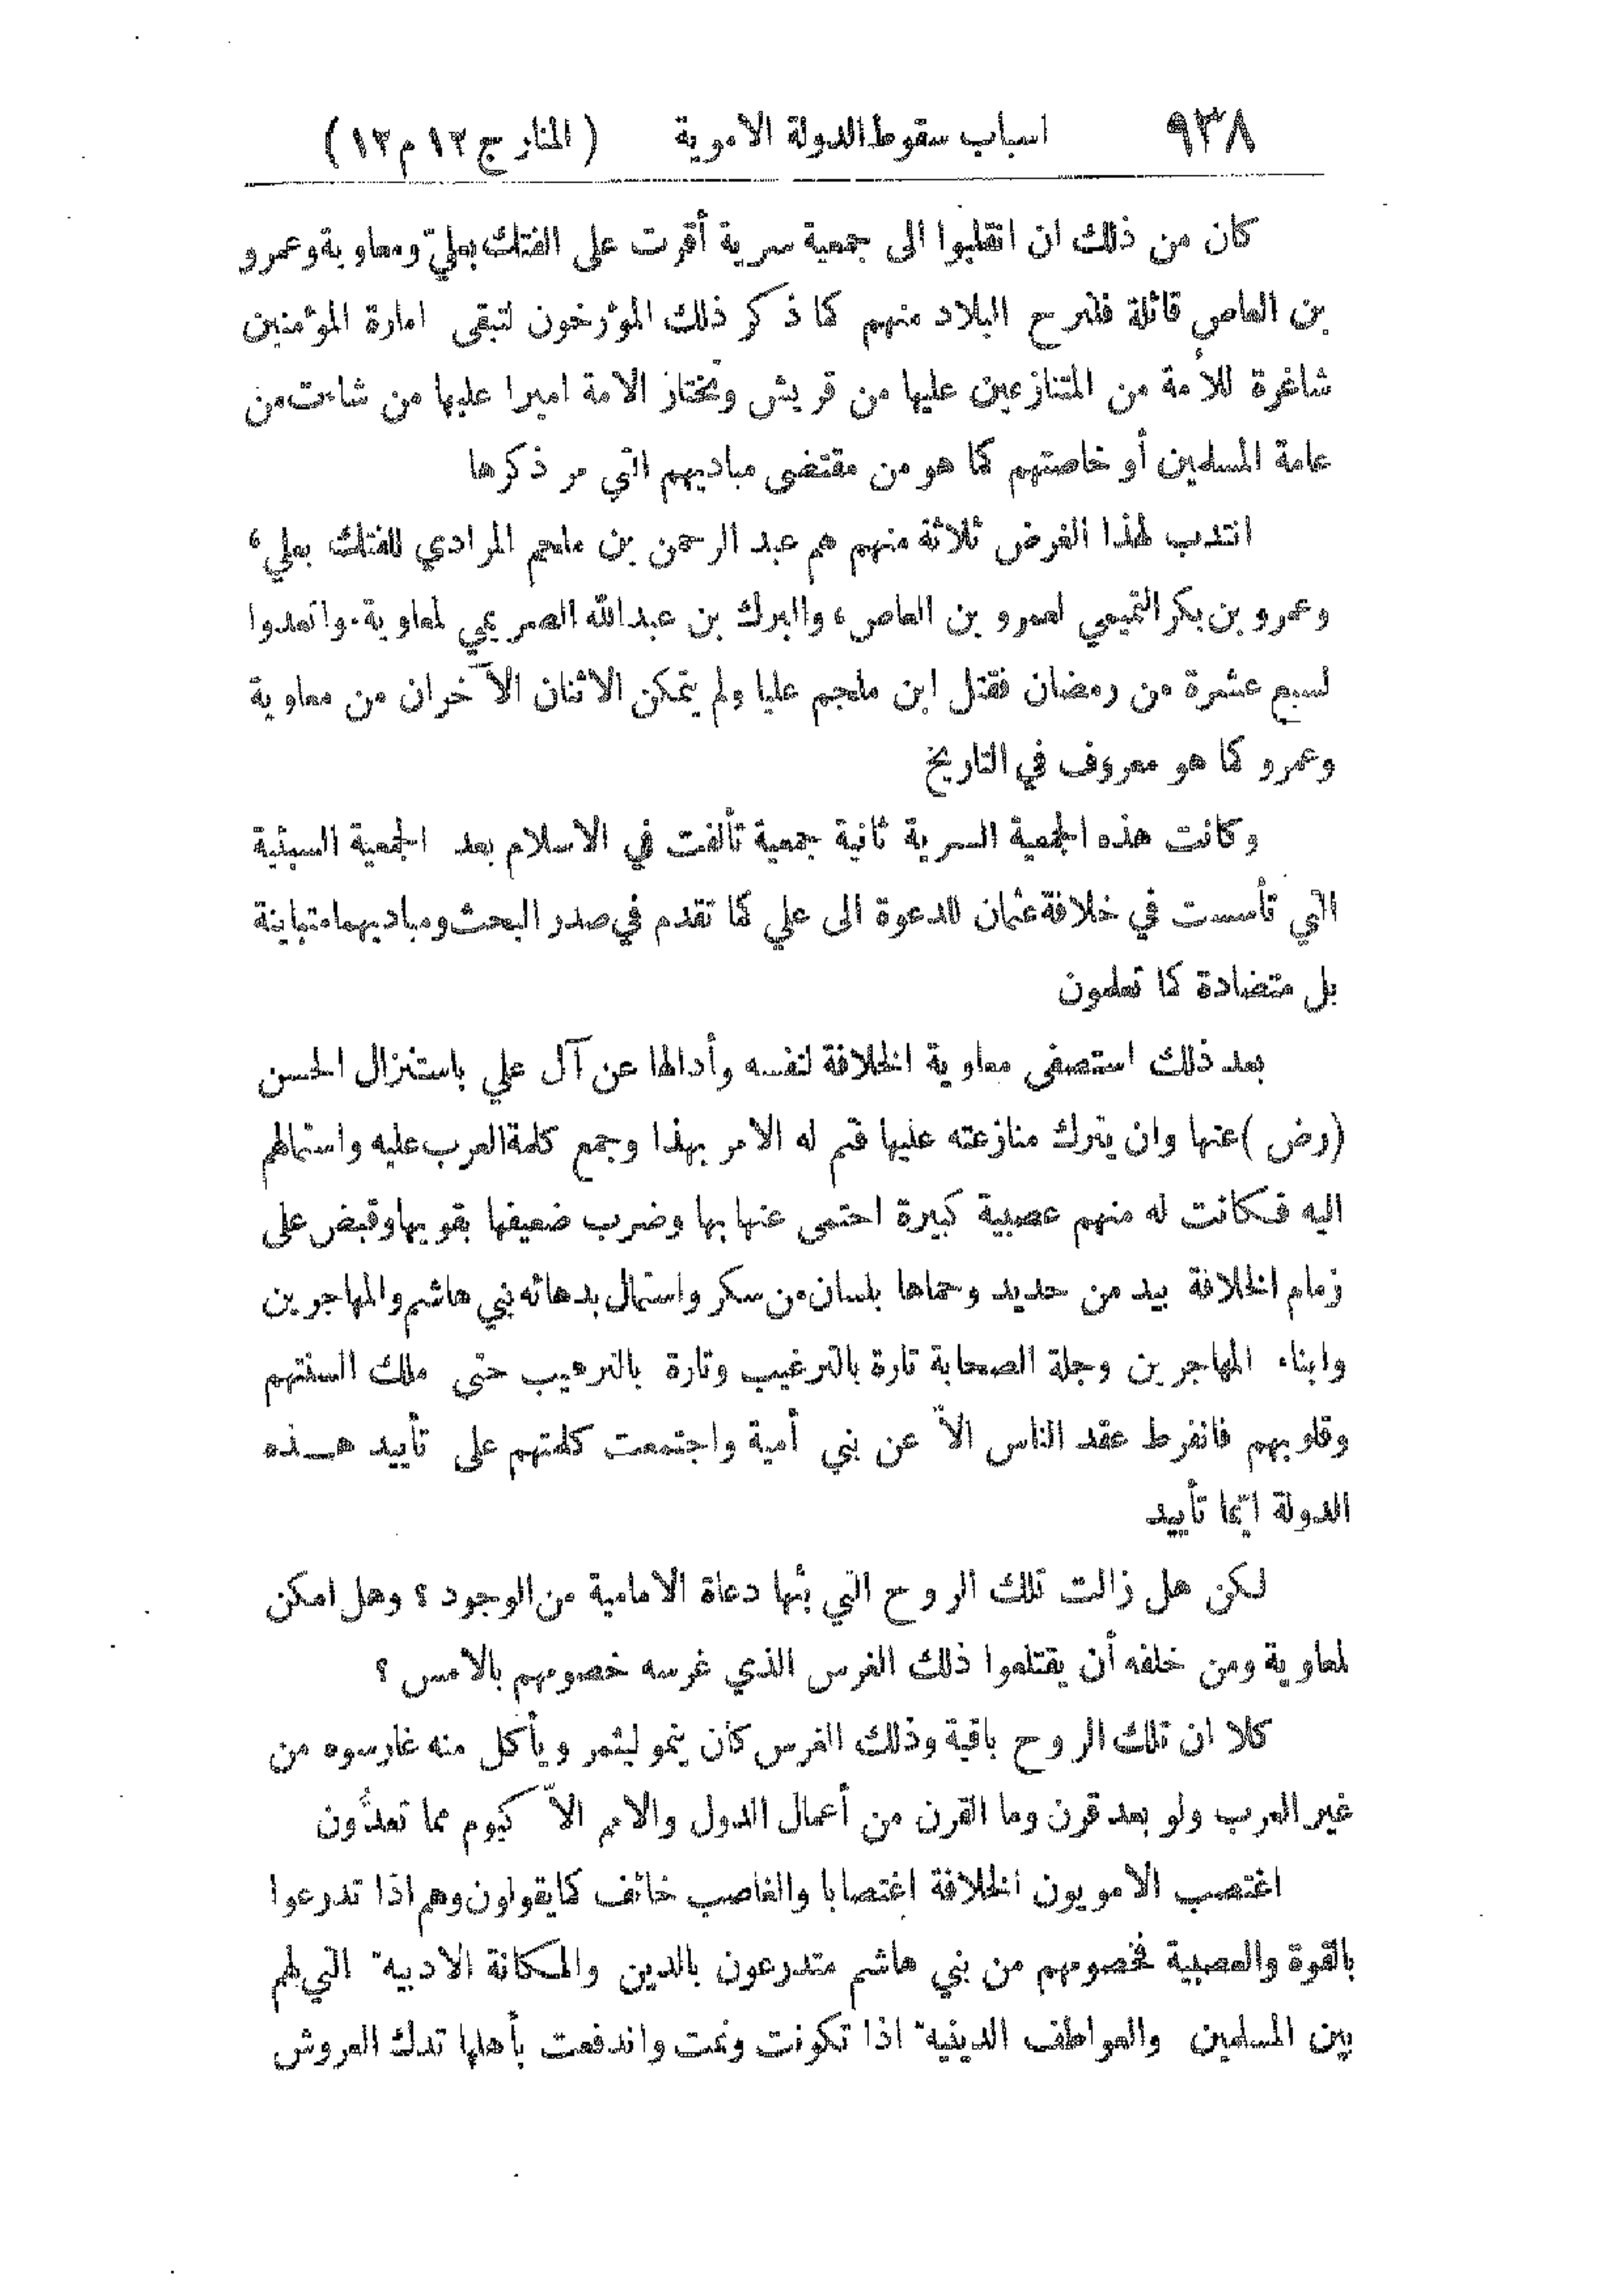 ٩٣٨ اسباب سقوط الدولة الاموية (المنار ج ١٢ م ١٢)
كان من ذلك ان انقلبوا الى جمعية سرية أقرت على الفتك بعليّ ومعاوية وعمرو
بن العاص قائلة فلنرح البلاد منهم كما ذكر ذلك المؤرخون لتبقى امارة المؤمنين
شاغرة للأمة من المتنازعين عليها من قريش وتختار الامة اميرا عليها من شاءت من
عامة المسلمين أو خاصتهم كما هو من مقتضى مباديهم التي مر ذكرها
انتدب لهذا الغرض ثلاثة منهم هم عبد الرحمن بن ملجم المرادي للفتك بعلي،
وعمرو بن بكر التميمي لعمرو بن العاص، والبرك بن عبدالله الصريمي لمعاوية. واتعدوا
لسبع عشرة من رمضان فقتل ابن ملجم عليا ولم يتمكن الاثنان الآخران من معاوية
وعمرو كما هو معروف في التاريخ
وكانت هذه الجمعية السرية ثانية جمعية تألفت في الاسلام بعد الجمعية السبئية
التي تأسست في خلافة عثمان للدعوة الى علي كما تقدم في صدر البحث ومباديهما متباينة
بل متضادة كما تعلمون
بعد ذلك استصفى معاوية الخلافة لنفسه وأدالها عن آل علي باستنزال الحسن
(رض) عنها وان يترك منازعته عليها فتم له الامر بهذا وجمع كلمة العرب عليه واستمالهم
اليه فكانت له منهم عصبية كبيرة احتمى عنها بها وضرب ضعيفها بقويها وقبض على
زمام الخلافة بيد من حديد وحماها بلسان من سكر واستمال بدهائه بني هاشم والمهاجرين
وابناء المهاجرين وجلة الصحابة تارة بالترغيب وتارة بالترهيب حتى ملك السنتهم
وقلوبهم فانفرط عقد الناس الاّ عن بني أمية واجتمعت كلمتهم على تأييد هذه
الدولة ايما تأييد
لكن هل زالت تلك الروح التي بثها دعاة الامامية من الوجود؟ وهل امكن
لمعاوية ومن خلفه أن يقتلعوا ذلك الغرس الذي غرسه خصومهم بالامس؟
كلا ان تلك الروح باقية وذلك الغرس كان ينمو ليثمر ويأكل منه غارسوه من
غير العرب ولو بعد قرن وما القرن من أعمال الدول والامم الاّ كيوم مما تعدُّون
اغتصب الامويون الخلافة اغتصابا والغاصب خائف كما يقولون وهم اذا تدرعوا
بالقوة والعصبية فخصومهم من بني هاشم متدرعون بالدين والمكانة الادبية التي لهم
بين المسلمين والعواطف الدينية اذا تكونت ونمت واندفعت بأهلها تدك العروش